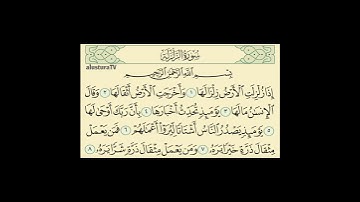 سُورَةُ الزَّلْزَلَةِ
alusturaTV
بِسْمِ اللَّهِ الرَّحْمَٰنِ الرَّحِيمِ
إِذَا زُلْزِلَتِ الْأَرْضُ زِلْزَالَهَا ١ وَأَخْرَجَتِ الْأَرْضُ أَثْقَالَهَا ٢ وَقَالَ
الْإِنسَٰنُ مَا لَهَا ٣ يَوْمَئِذٍ تُحَدِّثُ أَخْبَارَهَا ٤ بِأَنَّ رَبَّكَ أَوْحَىٰ لَهَا
٥ يَوْمَئِذٍ يَصْدُرُ النَّاسُ أَشْتَاتًا لِّيُرَوْا أَعْمَٰلَهُمْ ٦ فَمَن يَعْمَلْ
مِثْقَالَ ذَرَّةٍ خَيْرًا يَرَهُۥ ٧ وَمَن يَعْمَلْ مِثْقَالَ ذَرَّةٍ شَرًّا يَرَهُۥ ٨